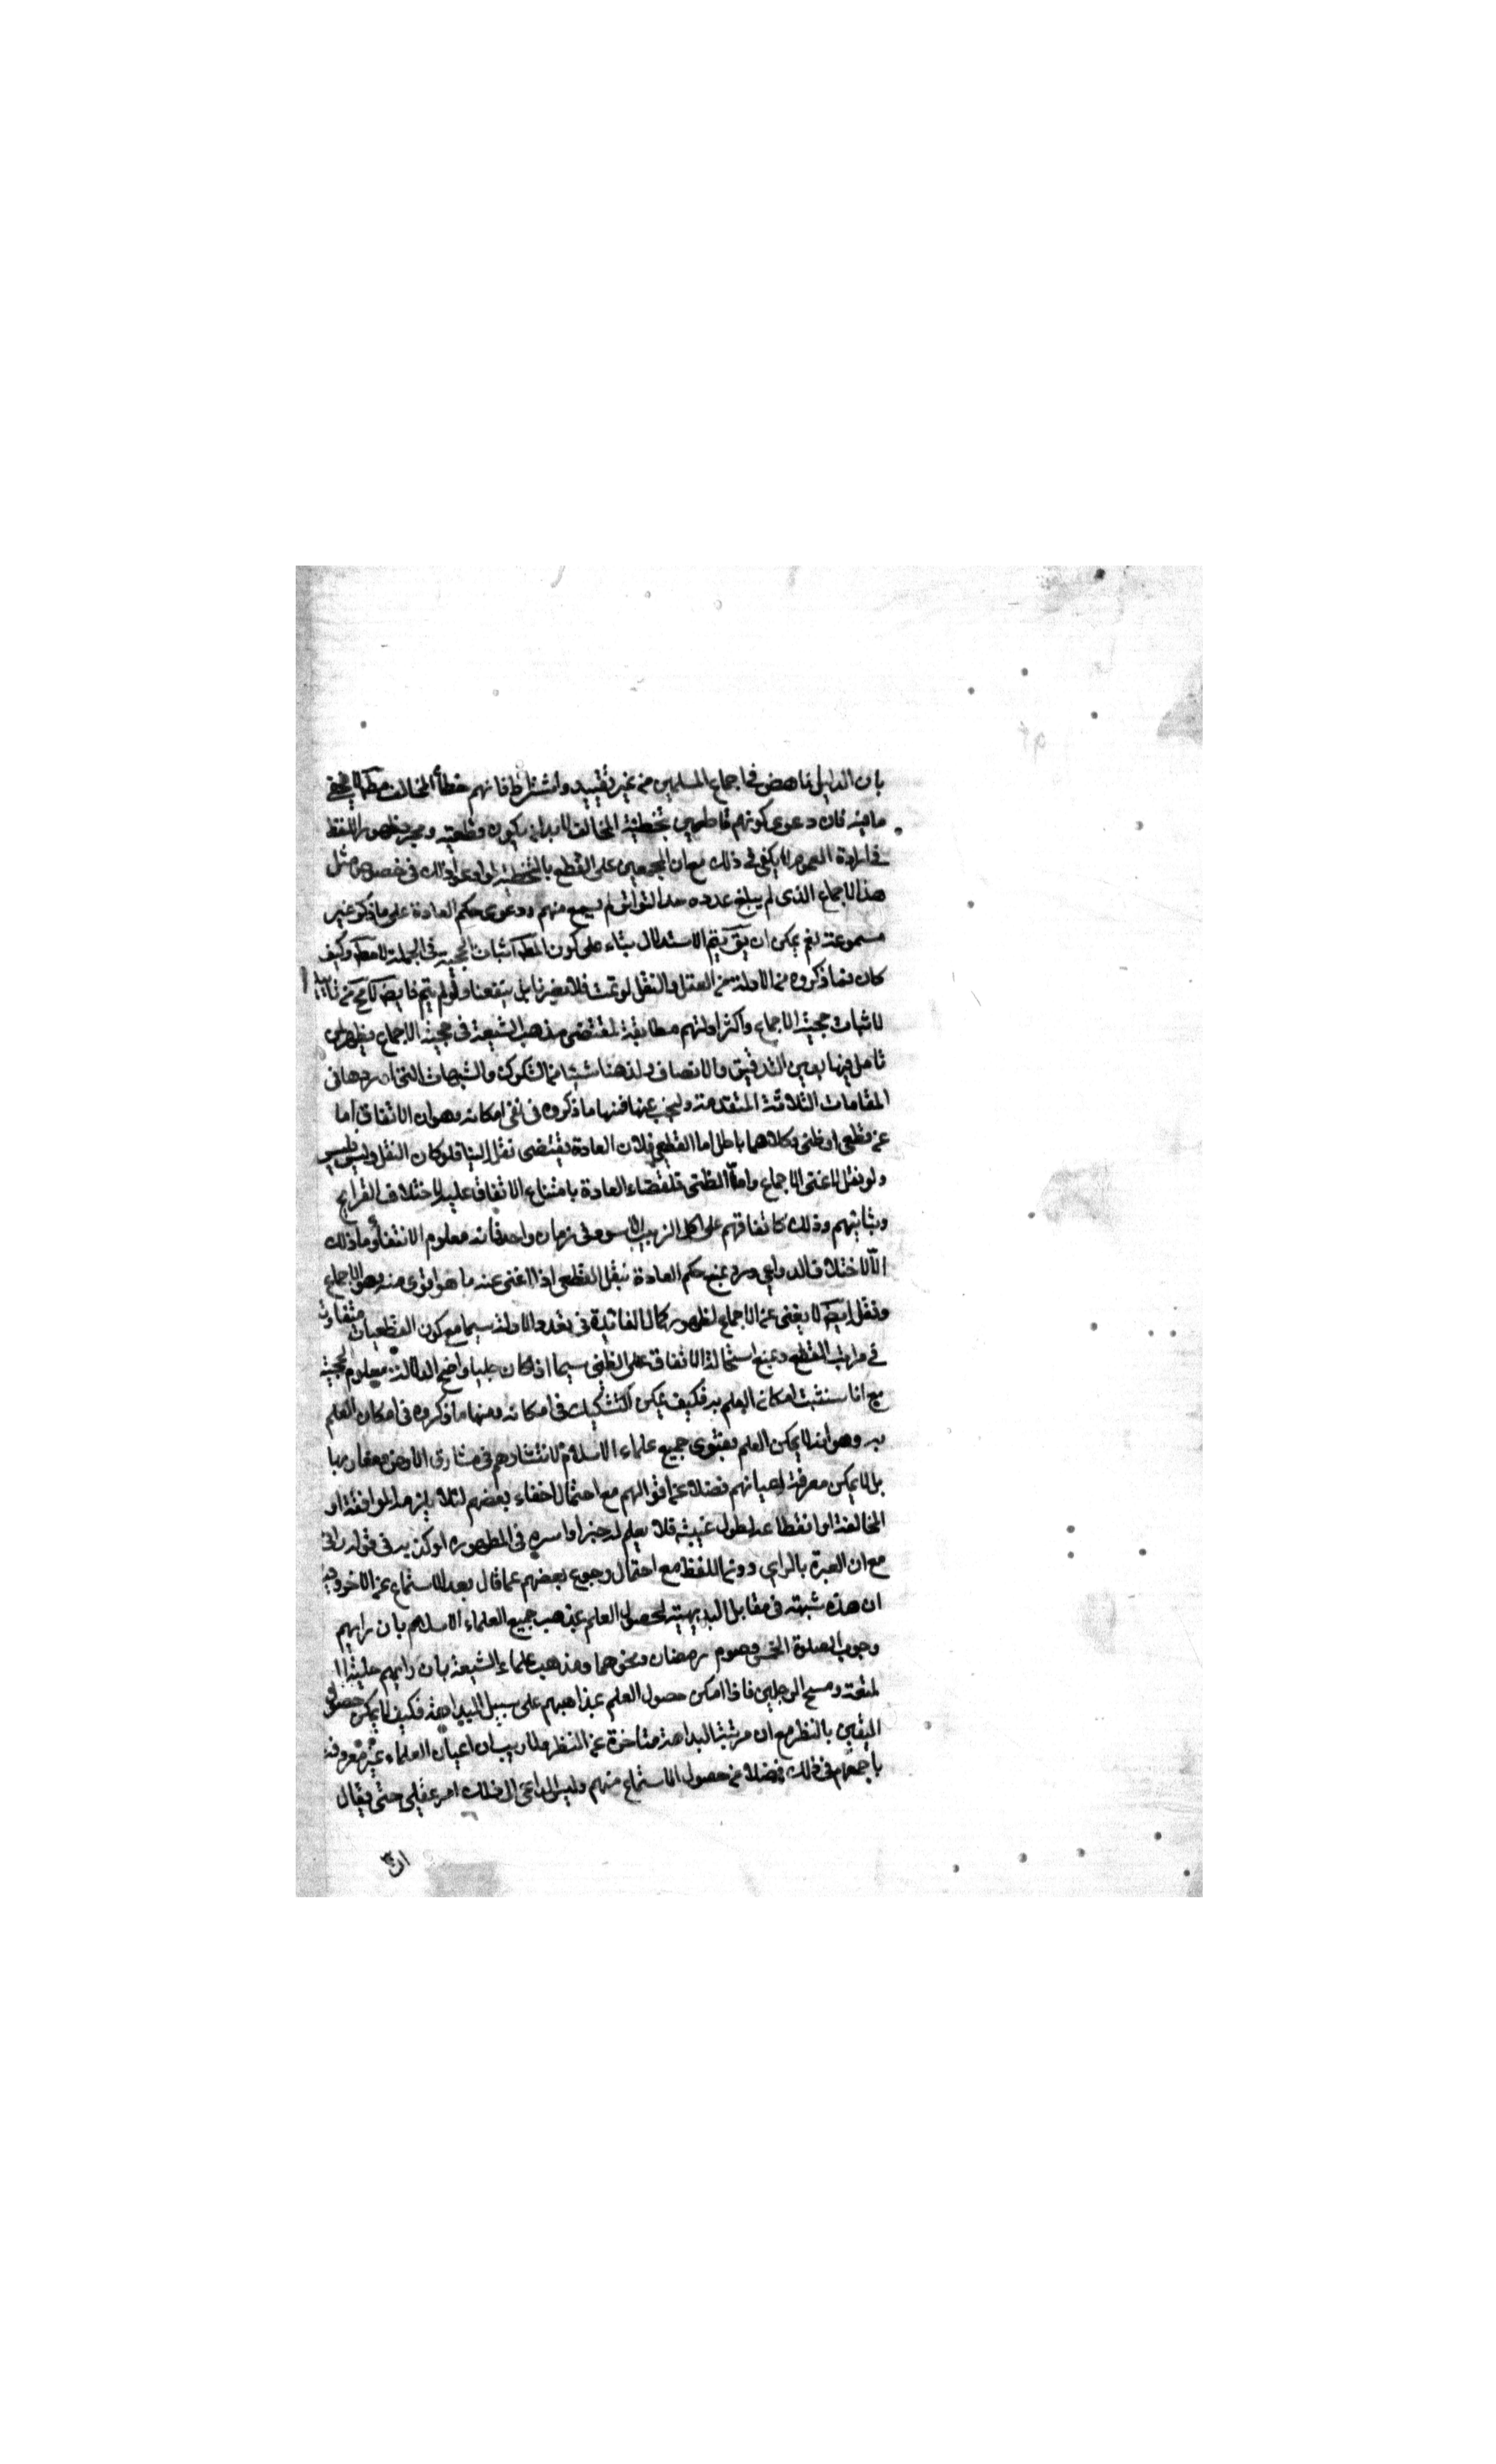 بان الدليل ناهض في اجماع المسلمين من غير تقييد واشتراط فانهم خطأ المخالف مطلقا لا يخفى
ما فيه فان دعوى كونهم قاطعين بتخطئة المخالف لا بد ان يكون قطعية ومجرد ظهور اللفظ
في ارادة العموم لا يكفي في ذلك مع ان المجمعين على القطع بالتخطئة لو ادعوا ذلك في خصوص مثل
هذا الاجماع الذي لم يبلغ عدده حد التواتر لم يسمع منهم ودعوى حكم العادة على ما ذكر غير
مسموعة نعم يمكن ان يق يتم الاستدلال بناء على كون المط اثبات الحجية في الجملة لا مط وكيف
كان فما ذكروه من الادلة من العقل والنقل لو تمت فلا تضرنا بل ينفعنا ولو لم يتم فايض
لاثبات حجية الاجماع واكثر ادلتهم مطابقة لمقتضى مذهب الشيعة في حجية الاجماع يظهر لمن
تامل فيها بعين التدقيق والانصاف ولنذكر هنا شيئا من الشكوك والشبهات التي اوردها في
المقامات الثلاثة المتقدمة ولنجب عنها فمنها ما ذكروه في نفي امكانه وهو ان الاتفاق اما
عن قطعي او ظني وكلاهما باطل اما القطعي فلان العادة يقتضي نقل الينا فلو كان لنقل وليس فليس
ولو نقل لاغنى الاجماع واما الظني فلقضاء العادة بامتناع الاتفاق عليه لاختلاف القرايح
وتباينهم وذلك كاتفاقهم على اكل الزبيب الاسود في زمان واحد فانه معلوم الانتفاء وما ذلك
الا لاختلاف الدواعي ورد بمنع حكم العادة بنقل القطعي اذا اغنى عنه ما هو اقوى منه وهو الاجماع
ونقل ايض لا يغني عن الاجماع لظهور كمال الفائدة في تعدد الادلة سيما مع كون القطعيات متفاوت
في مراتب القطع وبمنع استحالة الاتفاق على الظني سيما اذا كان جليا واضح الدلالة معلوم الحجية
مع انا سنثبت امكان العلم به فكيف يمكن التشكيك في امكانه ومنها ما ذكروه في امكان العلم
به وهو انه لا يمكن العلم بفتوى جميع علماء الاسلام لانتشارهم في مشارق الارض ومغاربها
بل لا يمكن معرفة اعيانهم فضلا عن اقوالهم مع احتمال اخفاء بعضهم لئلا يلزمه الموافقة او
المخالفة او انقطاعه لطول غيبته فلا يعلم له خبر او اسره في المطمورة او كذبه في قوله رايي
مع ان العبرة بالراي دون اللفظ مع احتمال رجوع بعضهم عما قال بعد الاستماع عن الاخر وفيه
ان هذه شبهة في مقابل البديهية لحصول العلم بمذهب جميع العلماء الاسلام بان رايهم
وجوب الصلوة الخمس وصوم رمضان ونحوهما ومذهب علماء الشيعة بان رايهم حلية ا
لمتعة ومسح الرجلين فاذا امكن حصول العلم بمذاهبهم على سبيل البداهة فكيف لا يمكن حصول
اليقين بالنظر مع ان مرتبة البداهة متاخرة عن النظر ولا ريب ان اعيان العلماء غير معروفة
باجمعهم في ذلك فضلا من حصول الاستماع منهم وليس الداعي الى ذلك امر عقلي حتى يقال